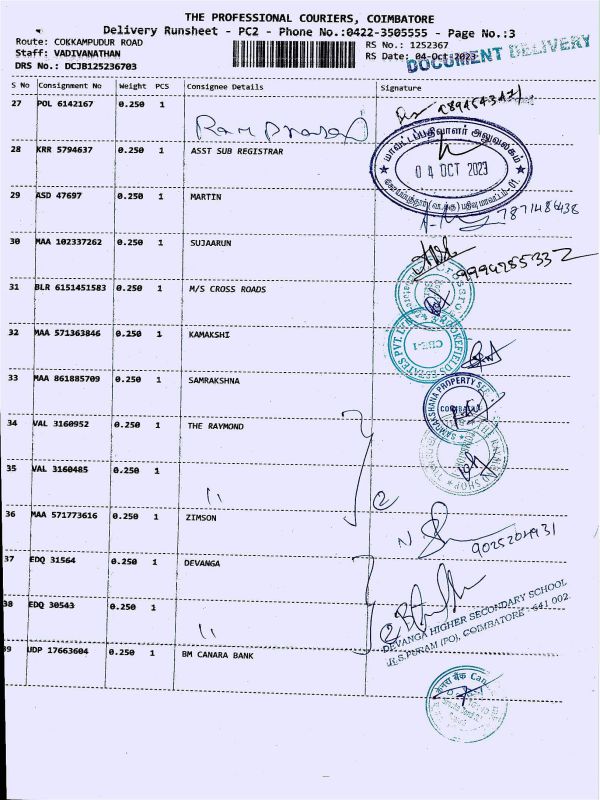 THE PROFESSIONAL COURIERS, COIMBATORE
Delivery Runsheet - PC2 - Phone No.:0422-3505555 - Page No.:3
Route: COKKAMPUDUR ROAD
RS No.: 1252367
Staff: VADIVANATHAN
RS Date: 04-Oct-2023
DOCUMENT DELIVERY
DRS No.: DCJB125236703
S No Consignment No Weight PCS Consignee Details Signature
27 POL 6142167 0.250 1
Ram prasad
28 KRR 5794637 0.250 1 ASST SUB REGISTRAR
மாவட்டப்பதிவாளர் அலுவலகம்
04 OCT 2023
29 ASD 47697 0.250 1 MARTIN
7871486438
30 MAA 102337262 0.250 1 SUJAARUN
9994285332
31 BLR 6151451583 0.250 1 M/S CROSS ROADS
32 MAA 571363846 0.250 1 KAMAKSHI
ESTATES PVT. LTD
CBE-1
33 MAA 861885709 0.250 1 SAMRAKSHNA
SAMRAKSHANA PROPERTY
34 VAL 3160952 0.250 1 THE RAYMOND
THE RAYMOND SHOP
35 VAL 3160485 0.250 1 "
2
36 MAA 571773616 0.250 1 ZIMSON
9025204931
37 EDQ 31564 0.250 1 DEVANGA
38 EDQ 30543 0.250 1 "
2
DEVANGA HIGHER SECONDARY SCHOOL
R.S.PURAM (PO), COIMBATORE - 641 002.
39 UDP 17663604 0.250 1 BM CANARA BANK
केनरा बैंक